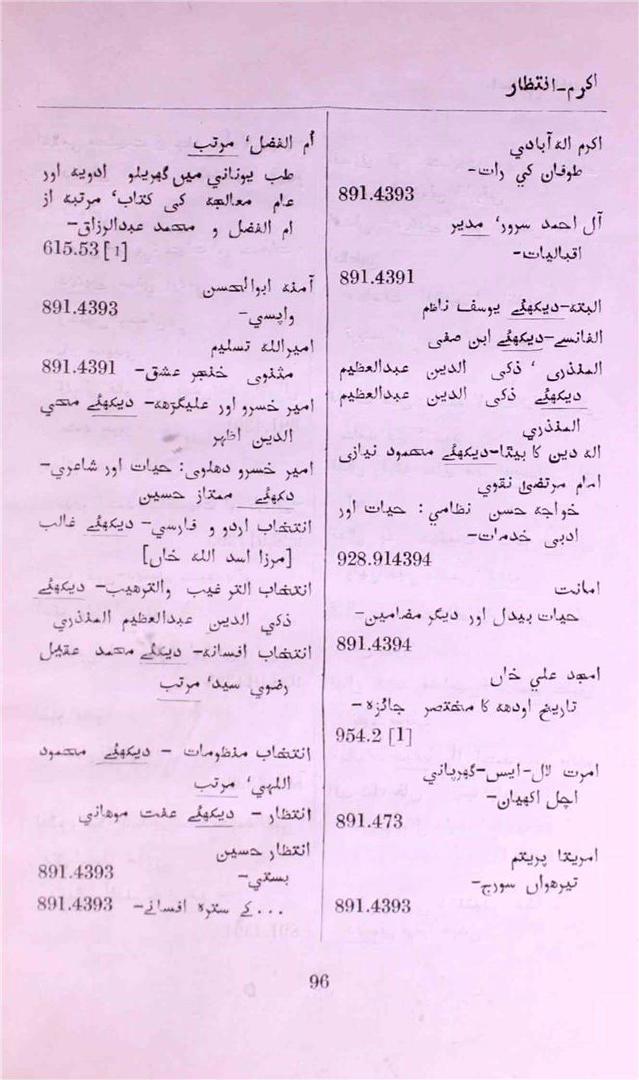 اکرم-انتظار
اکرم اله آبادي
طوفان کي رات-
891.4393
آل احمد سرور، مدیر
اقبالیات-
891.4391
البته-دیکھئے یوسف ناظم
الفانسے-دیکھئے ابن صفی
المنذری ، ذکی الدین عبدالعظیم
دیکھئے ذکی الدین عبدالعظیم
المنذری
اله دین کا بیٹا-دیکھئے محمود نیازی
امام مرتضیٰ نقوي
خواجه حسن نظامي: حیات اور
ادبی خدمات-
928.914394
امانت
حیات بیدل اور دیگر مضامین-
891.4394
امجد علي خاں
تاریخ اودھ کا مختصر جائزہ-
954.2 [1]
امرت لال-ایس-گهریانی
اچل اکهیان-
891.473
امریتا پریتم
تیرھواں سورج-
891.4393
أم الفضل، مرتب
طب یوناني میں گھریلو ادویه اور
عام معالجه کی کتاب، مرتبه از
ام الفضل و محمد عبدالرزاق-
615.53 [1]
آمنه ابوالحسن
واپسي- 891.4393
امیرالله تسلیم
مثنوی خنجر عشق- 891.4391
امیر خسرو اور علیگڑھ- دیکھئے محي
الدین اظہر
امیر خسرو دھلوی: حیات اور شاعري-
دکھئے ممتاز حسین
انتخاب اردو و فارسي- دیکھئے غالب
[مرزا اسد الله خاں]
انتخاب الترغیب والترھیب- دیکھئے
ذکي الدین عبدالعظیم المنذري
انتخاب افسانه- دیکئے محمد عقیل
رضوي سید، مرتب
انتخاب منظومات - دیکھئے محمود
اللہی، مرتب
انتظار - دیکھئے عفت موهاني
انتظار حسین
بستي- 891.4393
...کے ستره افسانے- 891.4393
96